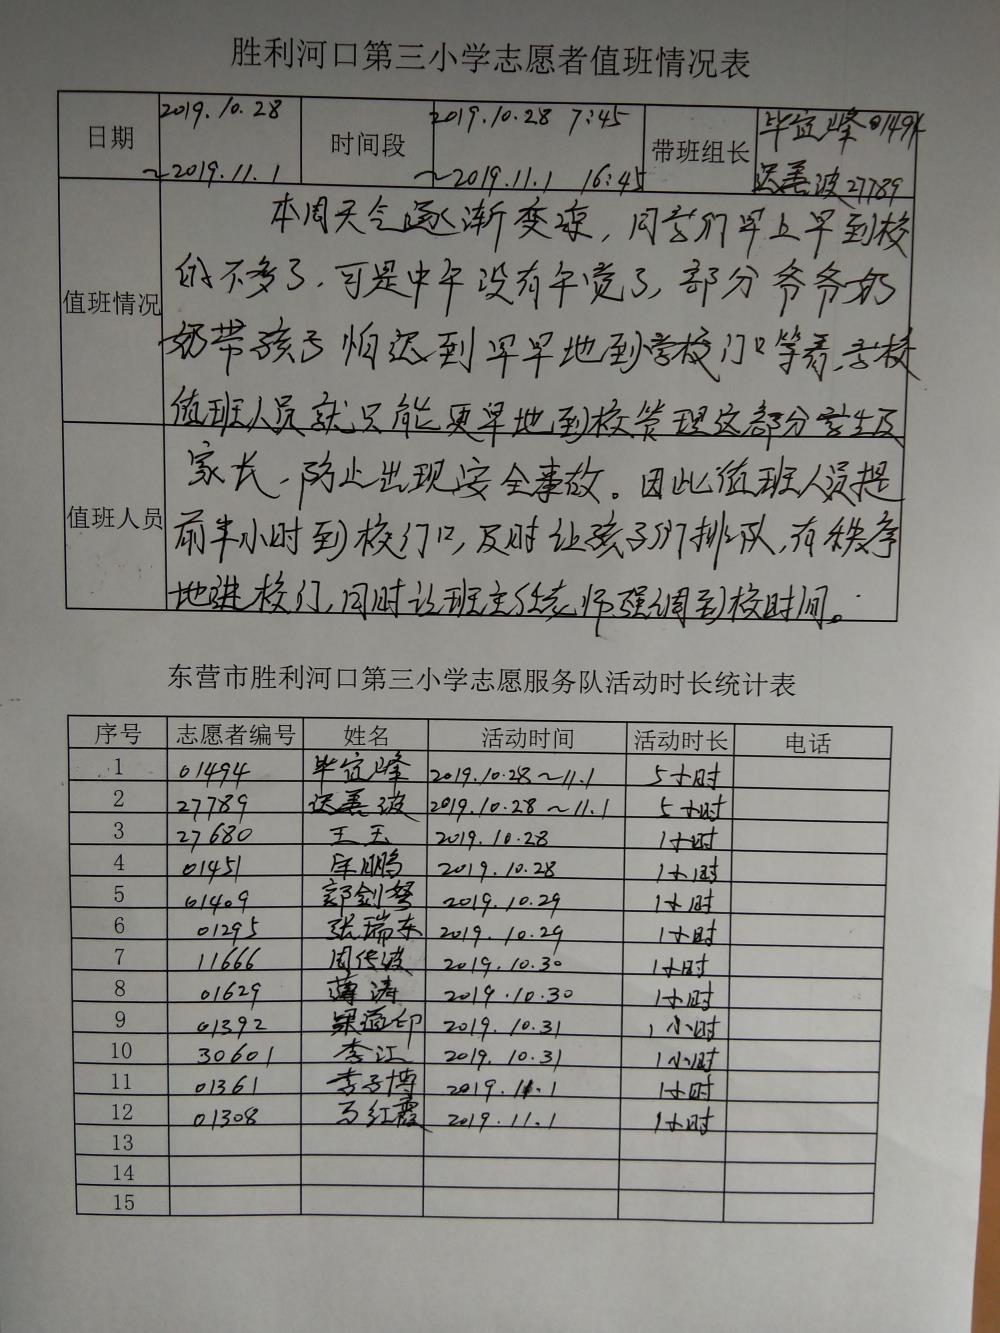 胜利河口第三小学志愿者值班情况表
日期 2019.10.28 ~2019.11.1 时间段 2019.10.28 7:45 ~2019.11.1 16:45 带班组长 毕宜峰 01494 迟善波 27789
值班情况
本周天气逐渐变凉,同学们早上早到校
的不多了,可是中午没有午觉了,部分爷爷奶
奶带孩子怕迟到早早地到学校门口等着,学校
值班人员就只能更早地到校管理这部分学生及
值班人员
家长,防止出现安全事故。因此值班人员提
前半小时到校门口,及时让孩子们排队,有秩序
地进校门,同时让班主任老师强调到校时间。
东营市胜利河口第三小学志愿服务队活动时长统计表
序号 志愿者编号 姓名 活动时间 活动时长 电话
1 01494 毕宜峰 2019.10.28~11.1 5小时
2 27789 迟善波 2019.10.28~11.1 5小时
3 27680 王玉 2019.10.28 1小时
4 01451 鹏 2019.10.28 1小时
5 01409 郭剑 2019.10.29 1小时
6 01295 张瑞东 2019.10.29 1小时
7 11666 周传波 2019.10.30 1小时
8 01629 薄涛 2019.10.30 1小时
9 01392 印 2019.10.31 1小时
10 30601 李江 2019.10.31 1小时
11 01361 李子博 2019.11.1 1小时
12 01308 马红霞 2019.11.1 1小时
13
14
15